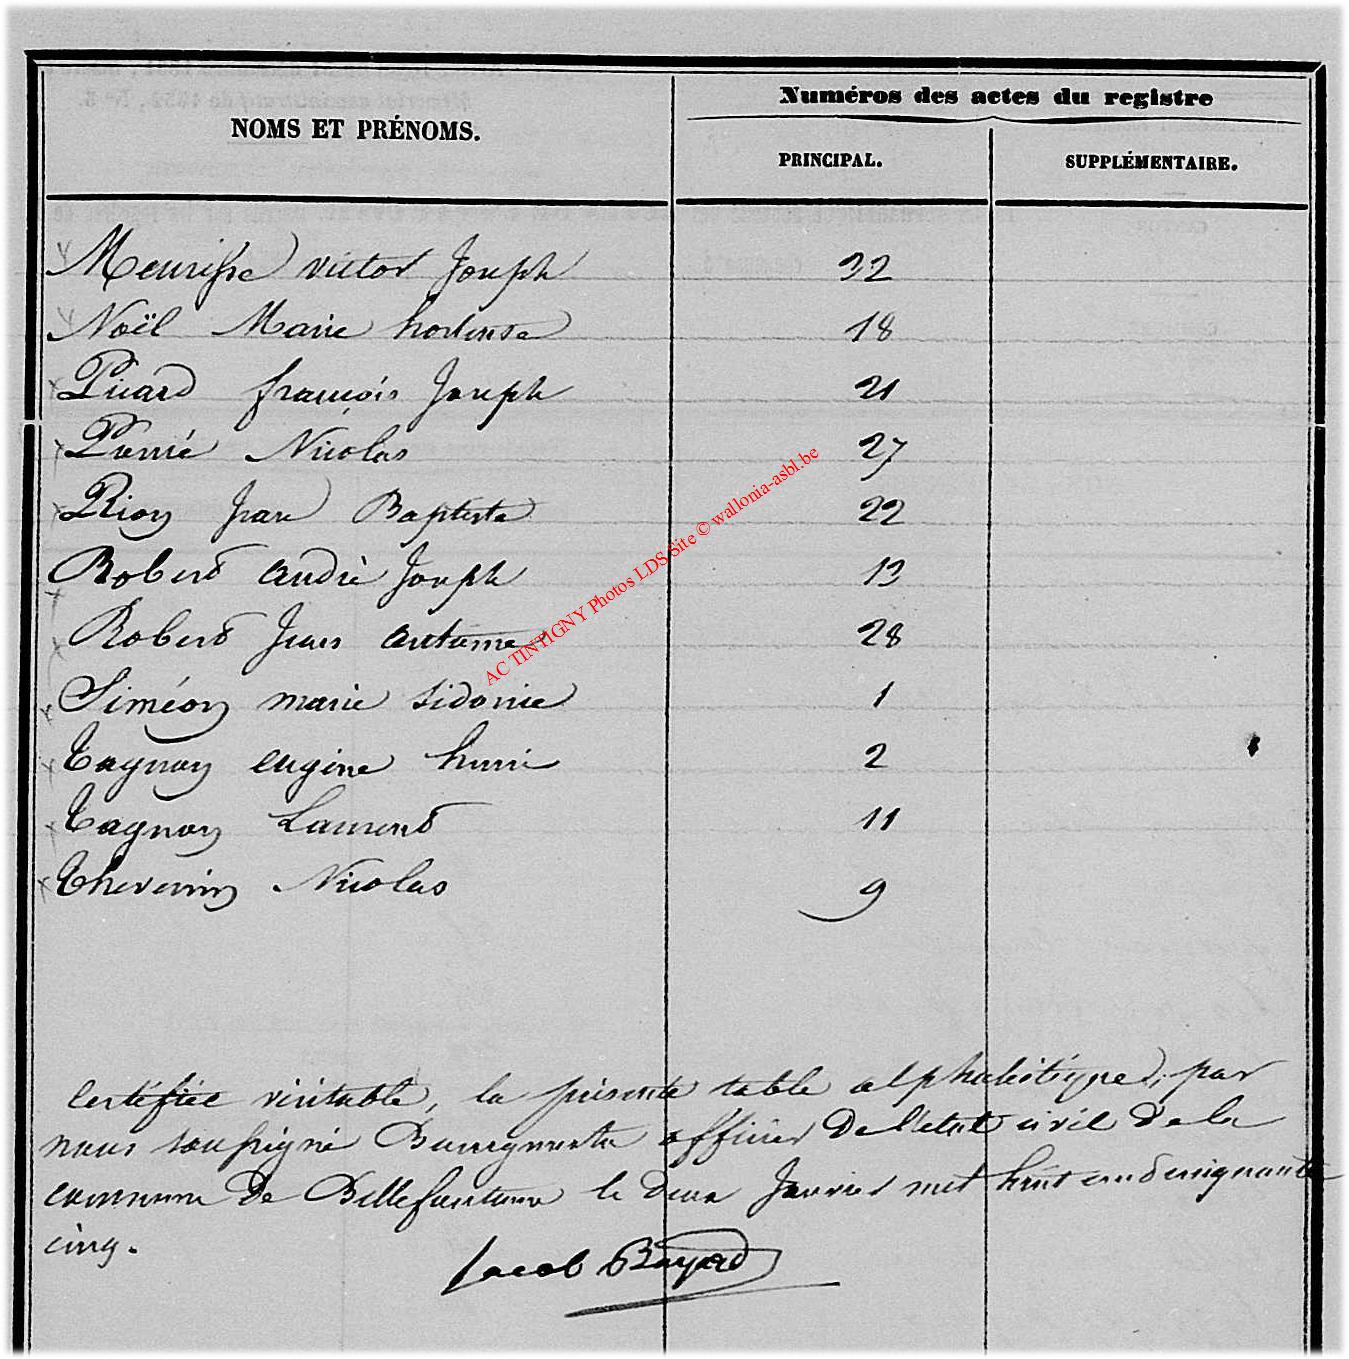 Numéros des actes du registre
NOMS ET PRÉNOMS.
PRINCIPAL.
SUPPLÉMENTAIRE.
Meurisse victor Joseph 32
Noël Marie hortense 18
Picard françois Joseph 21
Pierré Nicolas 27
Rion Jean Baptiste 22
Robert andré Joseph 13
Robert Jean antoine 28
Siméon marie sidonie 1
Tagnon eugène henri 2
Tagnon Laurent 11
Thevenin Nicolas 9
AC TINTIGNY Photos LDS Site © wallonia-asbl.be
Certifiée véritable, la présente table alphabétique, par
nous soussigné Bourgmestre officier de l'état civil de la
commune de Bellefontaine le deux Janvier mil huit cent cinquante
cinq.
Jacob Bayard